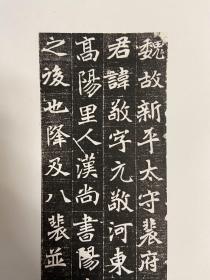 魏故新平太守裴府
君諱敬字元敬河東
高陽里人漢尚書陽
之後也降及八裴並